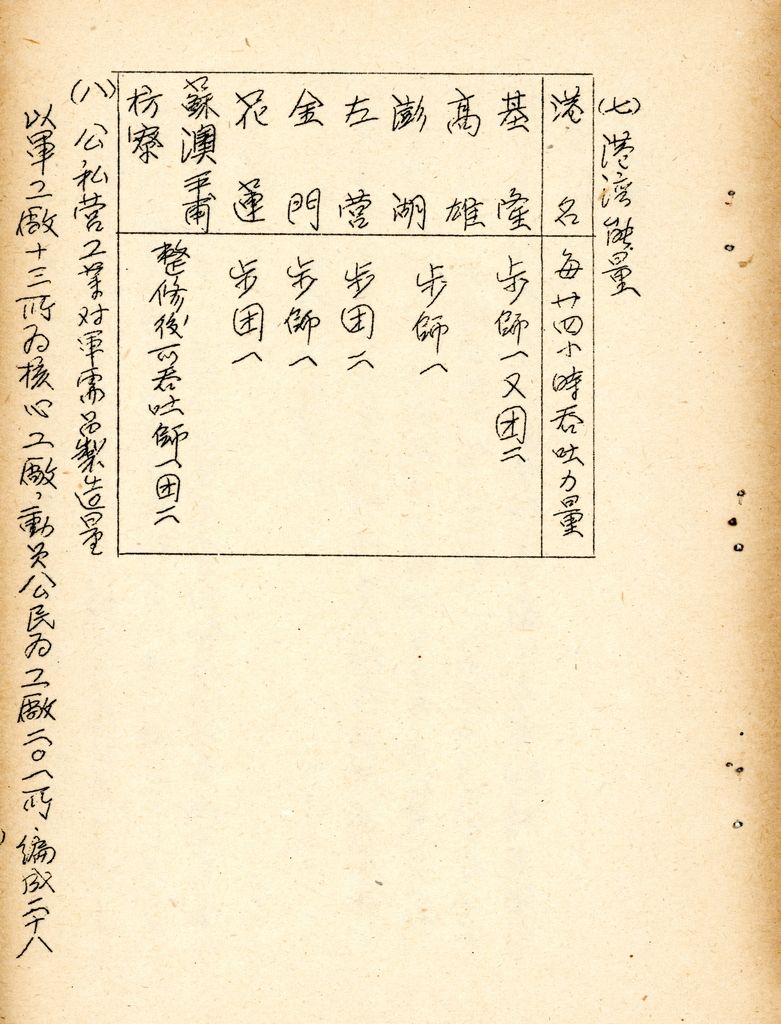 (七)港湾能量
港名 每廿四小時吞吐力量
基隆 步師一又团二
高雄
澎湖 步師一
左営 步团二
金門 步師一
花蓮 步团一
蘇澳 手甫
枋寮 整修後可吞吐師一团二
(八)公私営工業对軍需品製造量
以軍工廠十三所为核心工廠,動員公民为工廠二〇一所,編成二十八